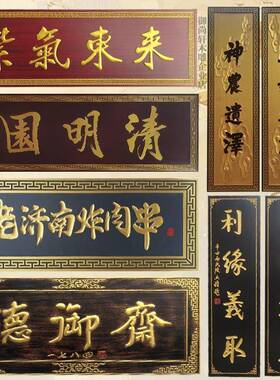 紫氣東来
清明園
老濟南炸肉串
德御齋
一七八四
御尚轩木雕企业店
神農遺澤
利緣義取